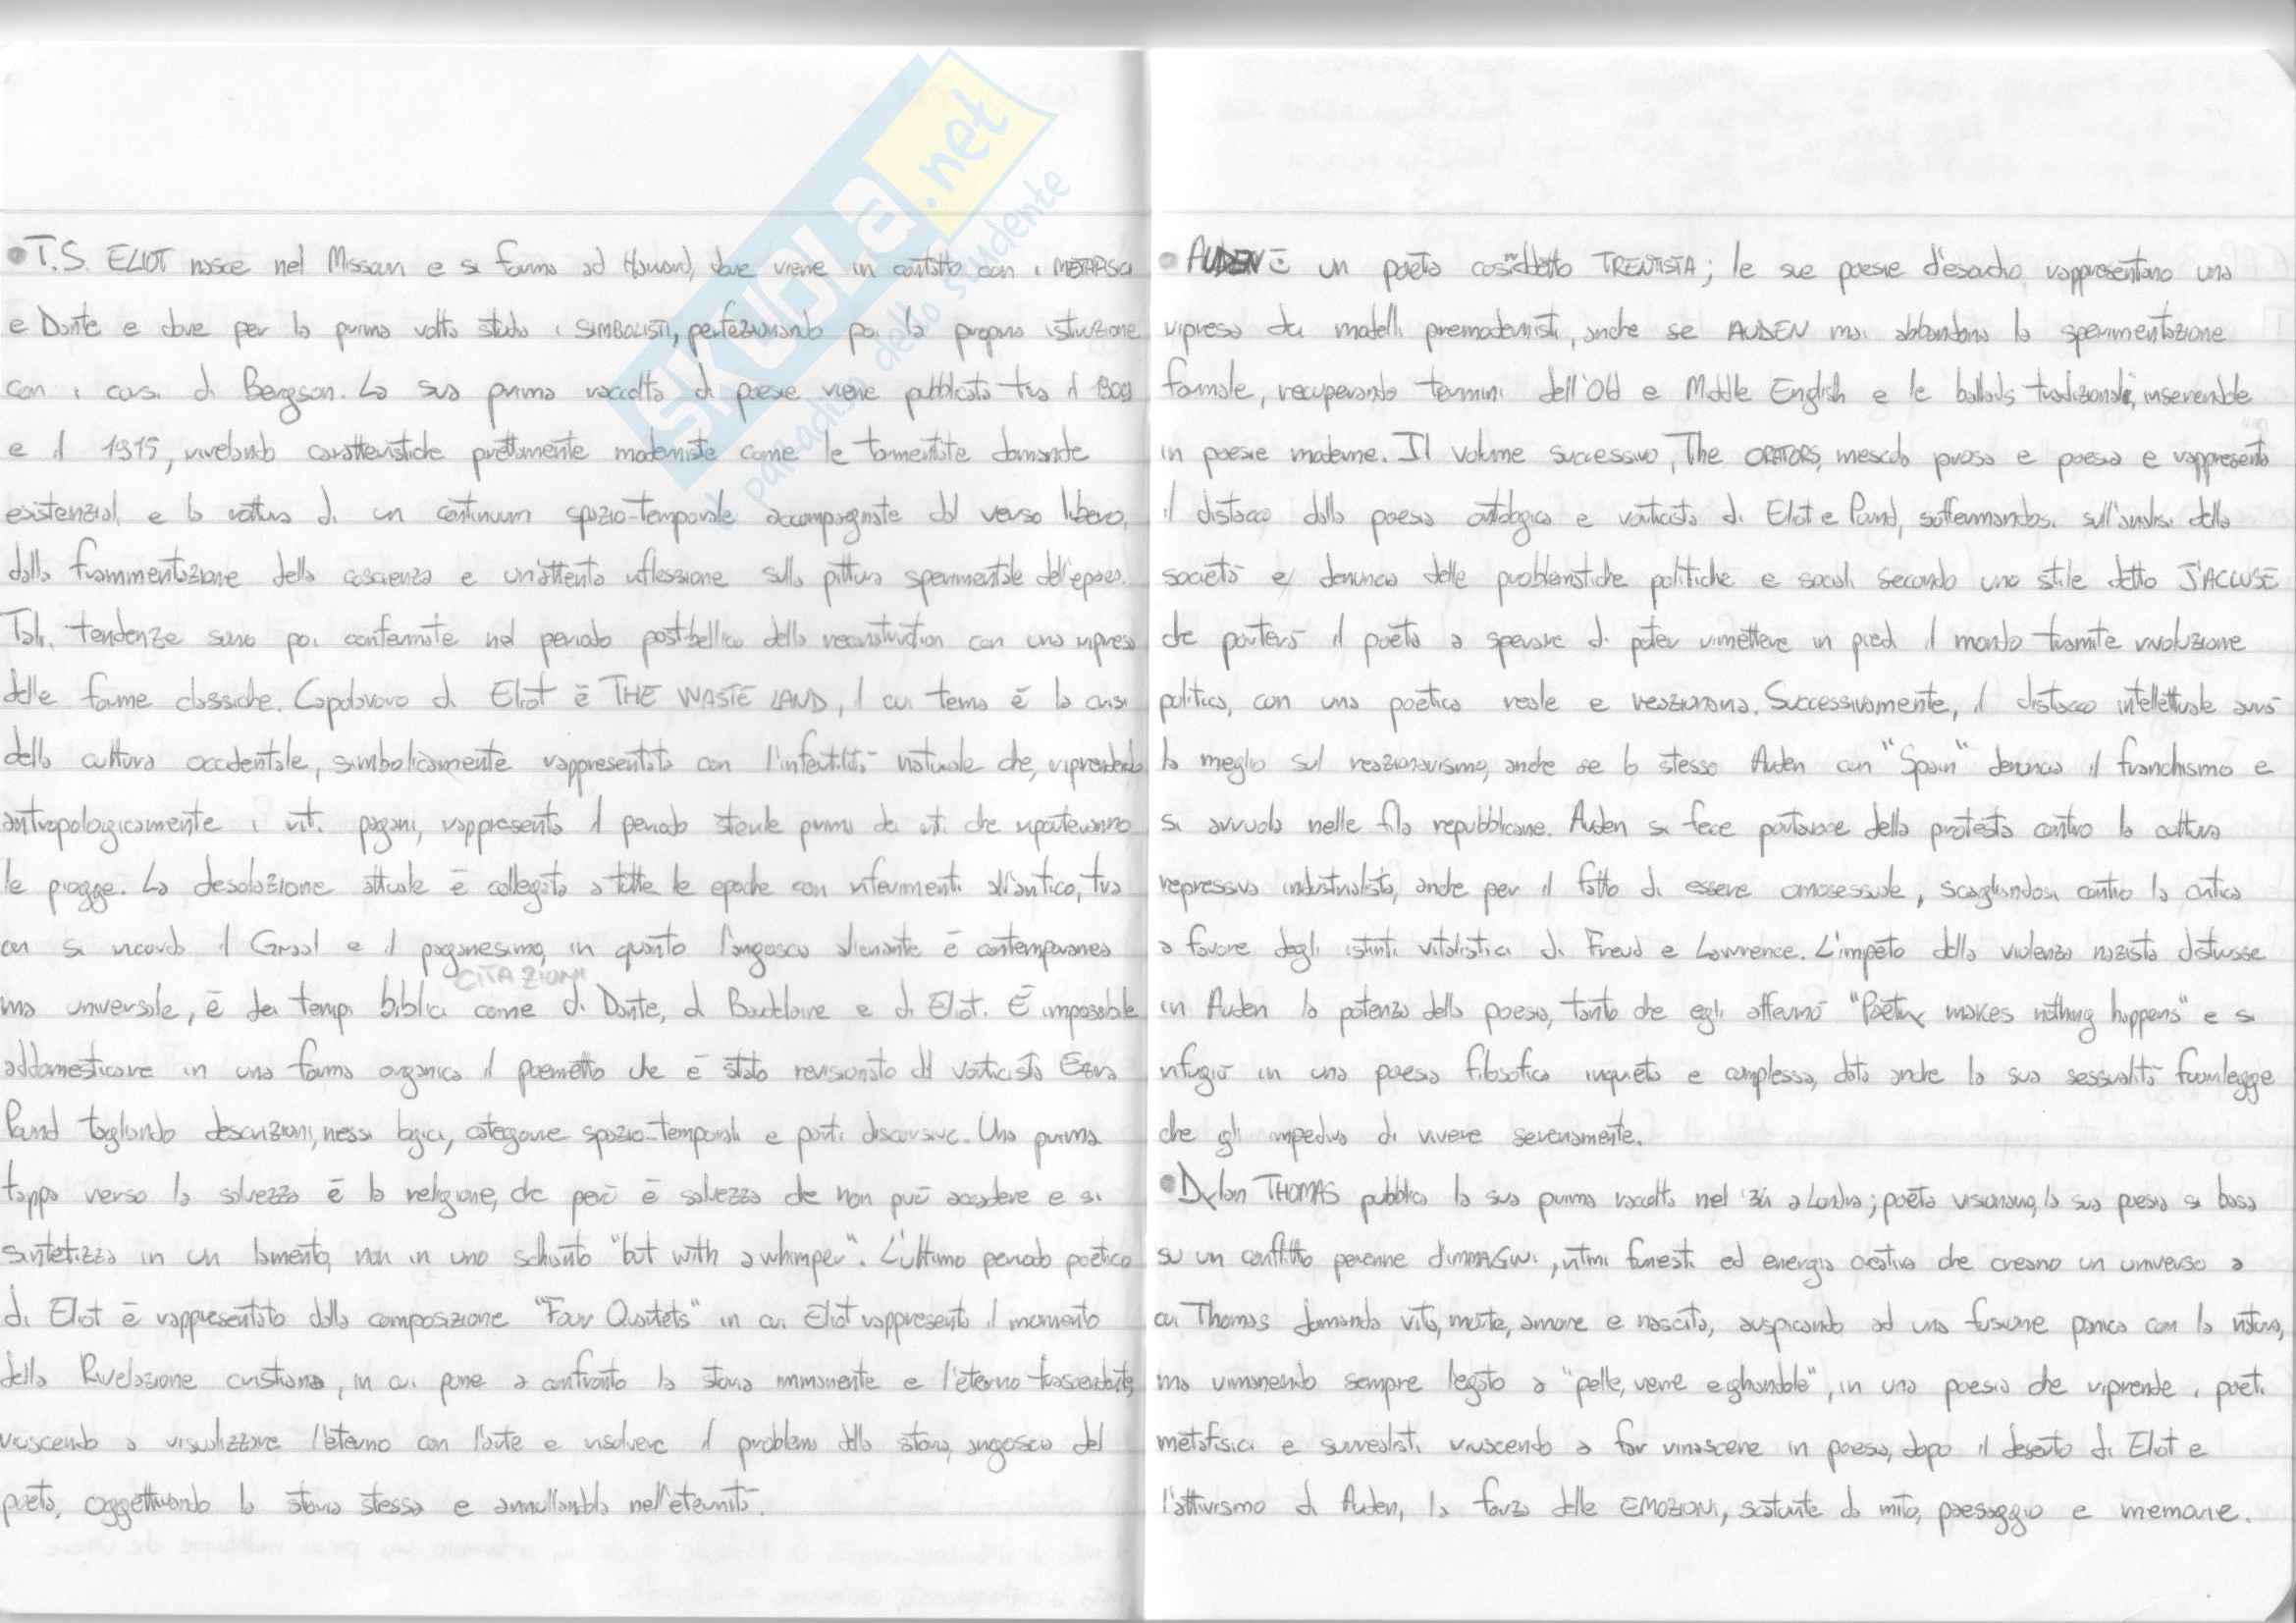 SKUOLA.net
il paradiso dello studente
• T.S. ELIOT nasce nel Missouri e si forma ad Harvard, dove viene in contatto con i METAFISICI
e Dante e dove per la prima volta studia i SIMBOLISTI, perfezionando poi la propria istruzione
con i corsi di Bergson. La sua prima raccolta di poesie viene pubblicata tra il 1909
e il 1915, rivelando caratteristiche prettamente moderniste come le tormentate domande
esistenziali e la rottura di un continuum spazio-temporale accompagnate dal verso libero,
dalla frammentazione della coscienza e un'attenta riflessione sulla pittura sperimentale dell'epoca.
Tali tendenze sono poi confermate nel periodo postbellico della reconstruction con una ripresa
delle forme classiche. Capolavoro di Eliot è THE WASTE LAND, il cui tema è la crisi
della cultura occidentale, simbolicamente rappresentata con l'infertilità naturale che, riprendendo
antropologicamente i riti pagani, rappresenta il periodo sterile prima dei riti che riporteranno
le piogge. La desolazione attuale è collegata a tutte le epoche con riferimenti all'antico, tra
cui si ricorda il Graal e il paganesimo, in quanto l'angoscia alienante è contemporanea
ma universale, è dei tempi biblici come CITAZIONI di Dante, di Baudelaire e di Eliot. È impossibile
addomesticare in una forma organica il poemetto che è stato revisionato dal vorticista Ezra
Pound togliendo descrizioni, nessi logici, categorie spazio-temporali e parti discorsive. Una prima
tappa verso la salvezza è la religione, che però è salvezza che non può accadere e si
sintetizza in un lamento, non in uno schianto "but with a whimper". L'ultimo periodo poetico
di Eliot è rappresentato dalla composizione "Four Quartets" in cui Eliot rappresenta il momento
della Rivelazione cristiana, in cui pone a confronto la storia immanente e l'eterno trascendente,
riuscendo a visualizzare l'eterno con l'arte e risolvere il problema della storia, angoscia del
poeta, oggettivando la storia stessa e annullandola nell'eternità.
• AUDEN è un poeta cosiddetto TRENTISTA; le sue poesie d'esordio rappresentano una
ripresa dei modelli premodernisti, anche se AUDEN mai abbandona la sperimentazione
formale, recuperando termini dell'Old e Middle English e le ballads tradizionali, inserendole
in poesie moderne. Il volume successivo, The ORATORS, mescola prosa e poesia e rappresenta
il distacco dalla poesia ontologica e vorticista di Eliot e Pound, soffermandosi sull'analisi della
società e denuncia delle problematiche politiche e sociali secondo uno stile detto J'ACCUSE
che porterà il poeta a sperare di poter rimettere in piedi il mondo tramite rivoluzione
politica, con una poetica reale e reazionaria. Successivamente, il distacco intellettuale avrà
la meglio sul reazionarismo, anche se lo stesso Auden con "Spain" denuncia il franchismo e
si arruola nelle fila repubblicane. Auden si fece portavoce della protesta contro la cultura
repressiva industrialista, anche per il fatto di essere omosessuale, scagliandosi contro la critica
a favore degli istinti vitalistici di Freud e Lawrence. L'impeto della violenza nazista distrusse
in Auden la potenza della poesia, tanto che egli affermò "Poetry makes nothing happens" e si
rifugiò in una poesia filosofica inquieta e complessa, data anche la sua sessualità fuorilegge
che gli impediva di vivere serenamente.
• Dylan THOMAS pubblica la sua prima raccolta nel '34 a Londra; poeta visionario, la sua poesia si basa
su un conflitto perenne d'IMMAGINI, ritmi funesti ed energia creativa che creano un universo a
cui Thomas domanda vita, morte, amore e nascita, auspicando ad una fusione panica con la natura,
ma rimanendo sempre legato a "pelle, vene e ghiandole", in una poesia che riprende i poeti
metafisici e surrealisti riuscendo a far rinascere in poesia, dopo il deserto di Eliot e
l'attivismo di Auden, la forza delle EMOZIONI, scaturite da mito, paesaggio e memorie.